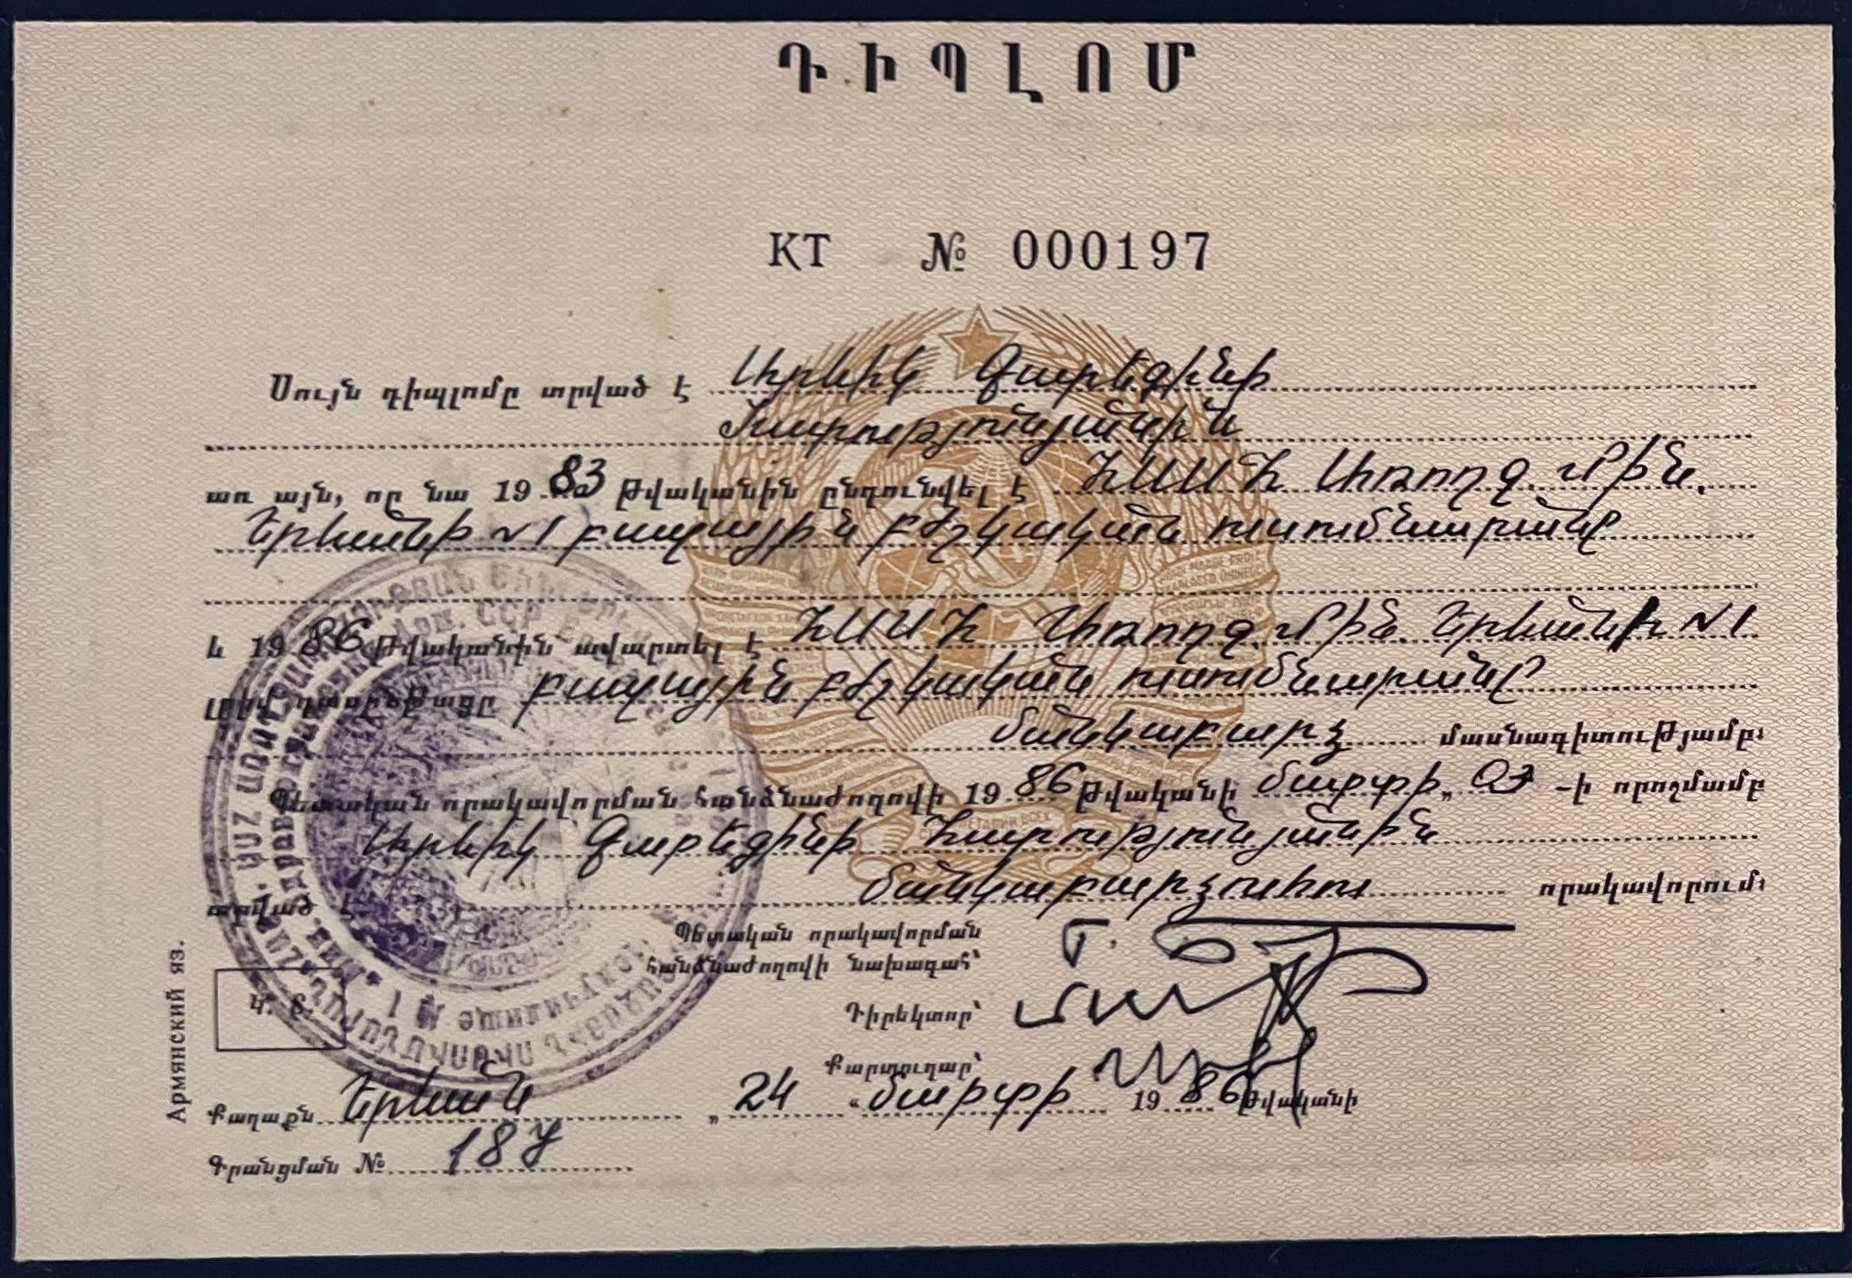 ԴԻՊԼՈՄ
КТ № 000197
Սույն դիպլոմը տրված է Արևիկ Գարեգինի
Հարությունյանին
առ այն, որ նա 1983 թվականին ընդունվել է ՀՍՍՀ Առողջ. Մին.
Երևանի №1 բազային բժշկական ուսումնարանը
և 1986 թվականին ավարտել է ՀՍՍՀ Առողջ. Մին. Երևանի №1
լրիվ դասընթացը բազային բժշկական ուսումնարանը
մանկաբարձ մասնագիտությամբ։
Պետական որակավորման հանձնաժողովի 1986 թվականի մարտի „ -ի որոշմամբ
Արևիկ Գարեգինի Հարությունյանին
տրված է մանկաբարձուհու որակավորում։
Պետական որակավորման
հանձնաժողովի նախագահ՝
Դիրեկտոր՝
Կ. Տ.
Քարտուղար՝
Քաղաքն Երևան „24“ մարտի 1986 թվականի
Գրանցման № 187
Армянский яз.